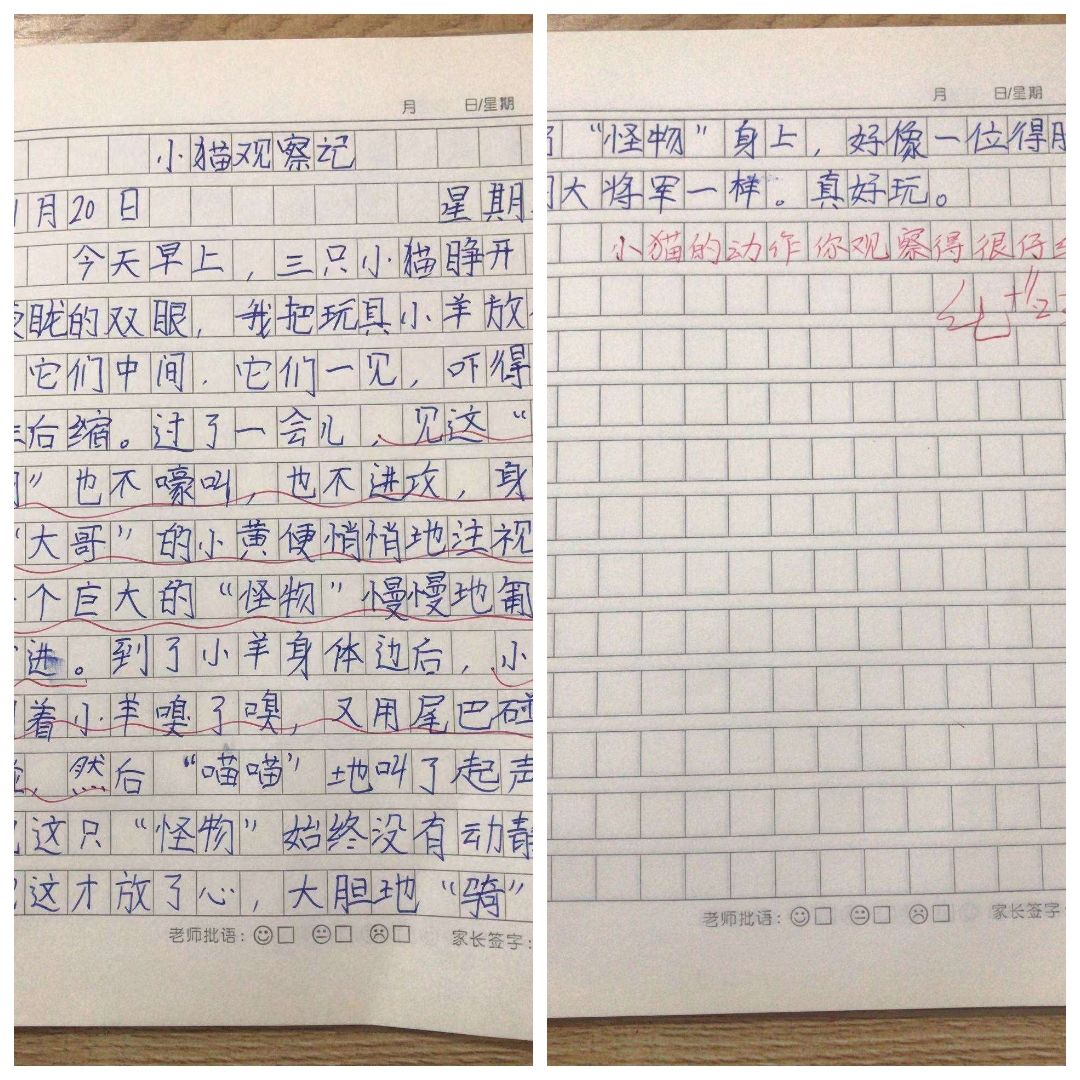 月 日/星期
小猫观察记
月20日 星期
今天早上，三只小猫睁开
眬的双眼，我把玩具小羊放
它们中间．它们一见，吓得
后缩。过了一会儿，见这“
”也不嚎叫，也不进攻，身
“大哥”的小黄便悄悄地注视
个巨大的“怪物”慢慢地匍
进。到了小羊身体边后，小
着小羊嗅了嗅，又用尾巴碰
，然后“喵喵”地叫了起声
这只“怪物”始终没有动静
这才放了心，大胆地“骑”
老师批语： 家长签字：
月 日/星期
“怪物”身上，好像一位得胜
大将军一样。真好玩。
小猫的动作你观察得很仔
老师批语： 家长签字：